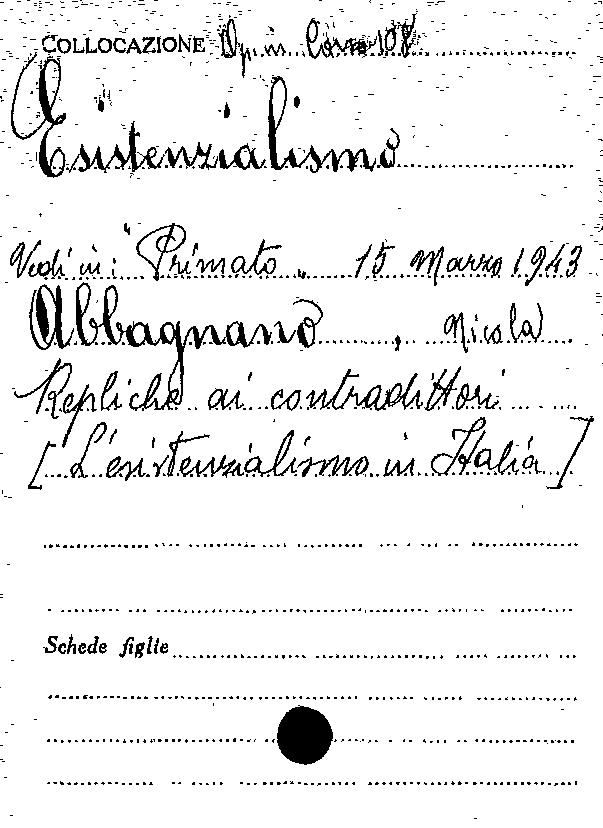 COLLOCAZIONE Op. in Corso 108
Esistenzialismo
Vedi in: "Primato" 15 Marzo 1943
Abbagnano, Nicola
Repliche ai contradittori
[L'esistenzialismo in Italia]
Schede figlie